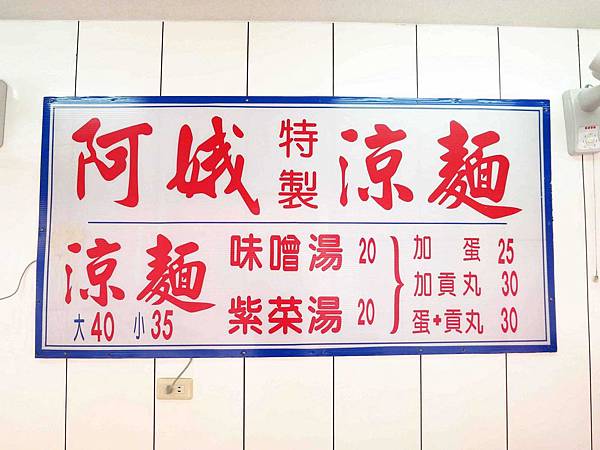 阿娥 特製 涼麵
涼麵
大40 小35
味噌湯 20
紫菜湯 20
加蛋 25
加貢丸 30
蛋+貢丸 30